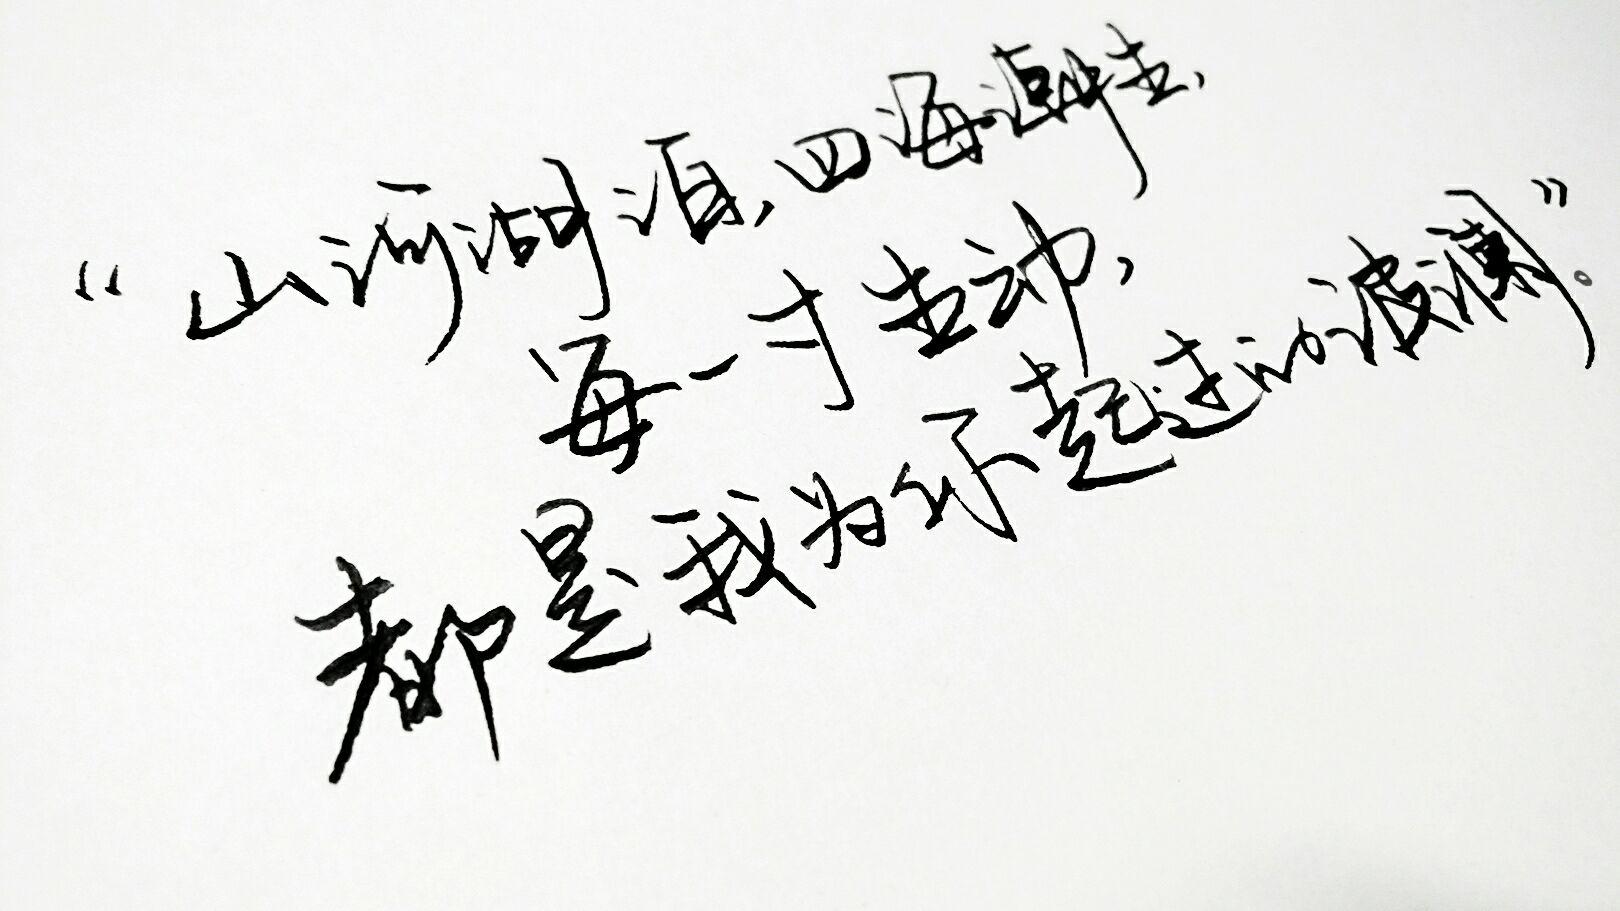 “山河湖泊，四海潮生，
每一寸生动，
都是我为你起过的波澜”。